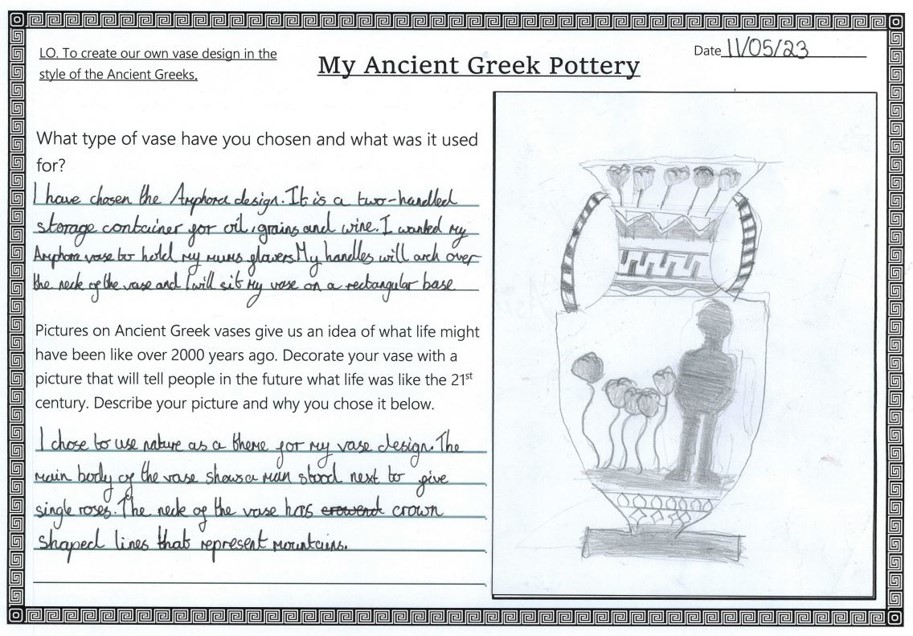 LO. To create our own vase design in the
style of the Ancient Greeks,
My Ancient Greek Pottery
Date 11/05/23
What type of vase have you chosen and what was it used
for?
I have chosen the Amphora design. It is a two-handled
storage container for oil, grains and wine. I wanted my
Amphora vase to hold my mums flowers. My handles will arch over
the neck of the vase and I will sit my vase on a rectangular base
Pictures on Ancient Greek vases give us an idea of what life might
have been like over 2000 years ago. Decorate your vase with a
picture that will tell people in the future what life was like the 21st
century. Describe your picture and why you chose it below.
I chose to use nature as a theme for my vase design. The
main body of the vase shows a man stood next to give
single roses. The neck of the vase has crown
shaped lines that represent mountains.